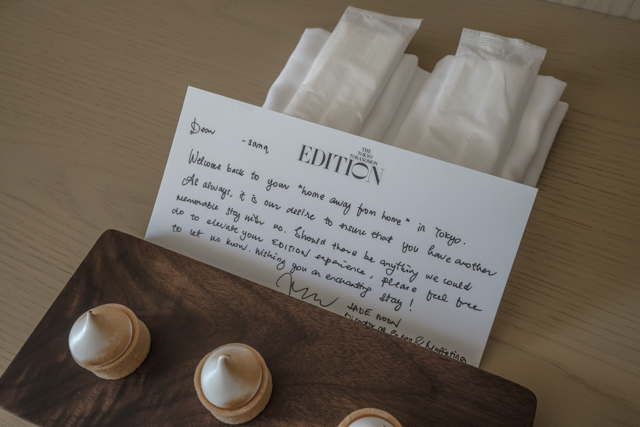 THE
TOKYO
TORANOMON
EDITION
Dear -sama,
Welcome back to your "home away from home" in Tokyo.
As always, it is our desire to ensure that you have another
memorable stay with us. Should there be anything we could
do to elevate your EDITION experience, please feel free
to let us know. Wishing you an enchanting stay!
JADE NOON
Director of Sales & Marketing